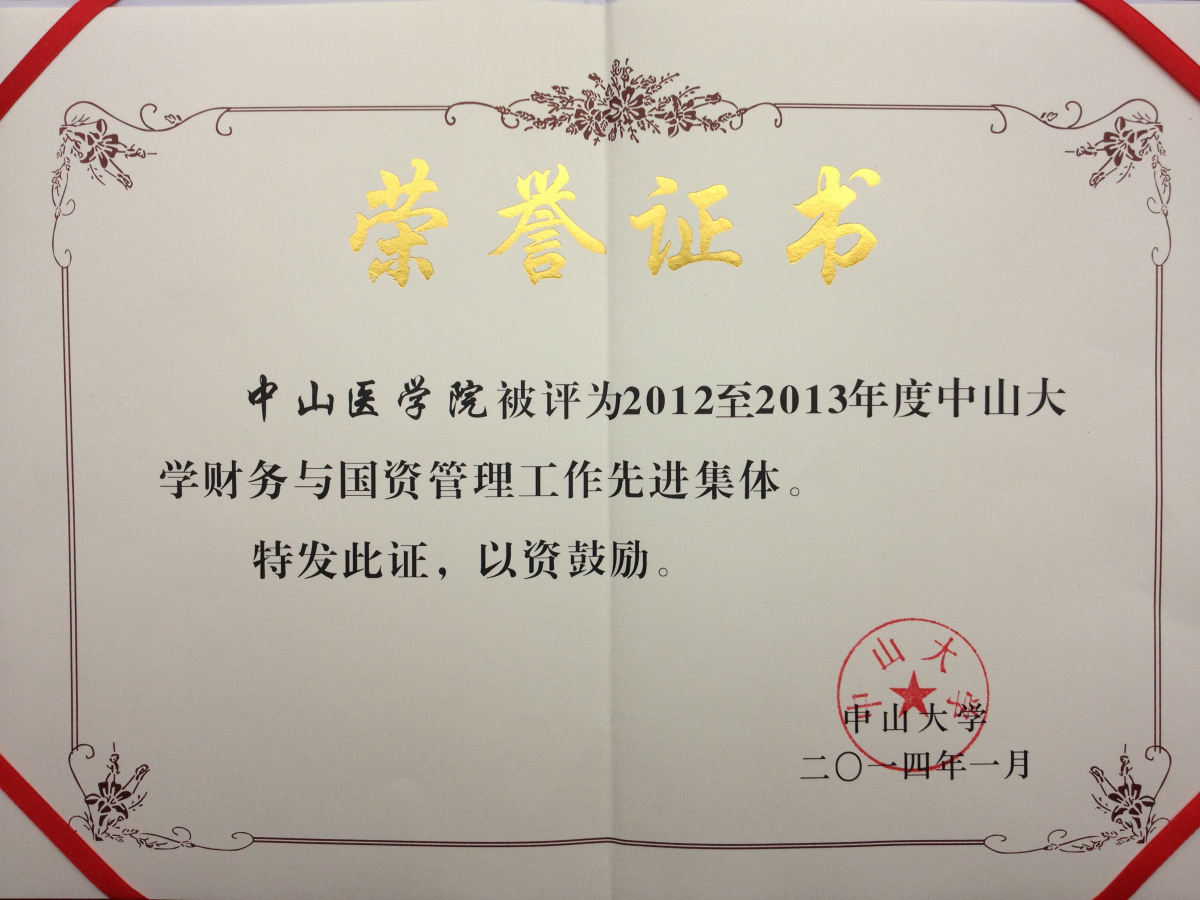 荣誉证书
中山医学院被评为2012至2013年度中山大
学财务与国资管理工作先进集体。
特发此证，以资鼓励。
中山大学
中山大学
二〇一四年一月